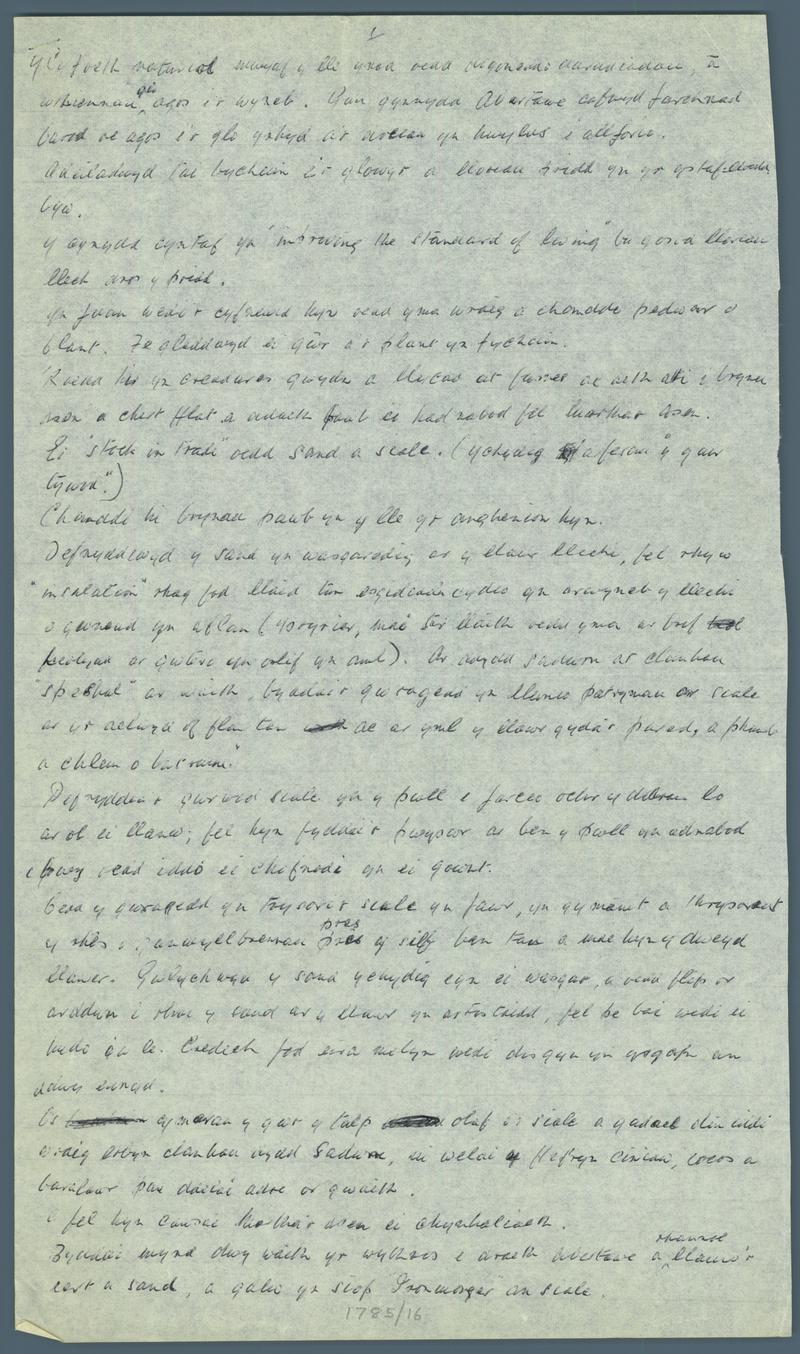 1
Y Glo foeth naturiol mwyaf y lle ynad oedd digonedd
glo
agos i'r wyneb. Gan gynnydd Abertawe cafwyd farchnad
barod ac agos i'r glo ynhyd a'r docian yn hwylus i allforio.
Adeiladwyd tai bychain i'r glowyr a lloriau pridd yn yr ystafelloedd
byw.
Y cynydd cyntaf yn "improving the standard of living" bu gosod lloriau
llech dros y pridd.
Yn fuan wedi'r cyfnewid hyn oedd yma wraig a chanddi pedwar o
blant. Fe gladdwyd ei gŵr a'r plant yn fychain.
'Roedd hi yn creadures gwydn a llygad at fusnes ac aeth ati i brynu
asen a chert fflat a daeth paub ei hadnabod fel Martha'r Asen.
Ei "stock in trade" oedd sand a scale. (ychydig y gair
tywod".)
Chanddi hi brynau paub yn y lle yr anghenion hyn.
Defnyddiwyd y sand yn wasgaredig ar y llawr llechi, fel rhyw
"insulation" rhag fod llaid tan esgidiau cydio yn arwyneb y llechi
a gwneud yn aflan ( mae tir llaith oedd yma ar
ar gwteri yn orlif yn aml). Ar dydd Sadwrn a'r clanhau
"speshal" ar waith, byddai'r gwragedd yn llunio patrymau o'r scale
ar yr aelwyd o flan tan ac ar yml y llawr gyda'r pared, a phaub
a chlem o batrwm."
Defnyddiau'r gwr wod scale yn y pwll i farcio ochr y ddram lo
ar ol ei llanw; fel hyn fyddai'r pwyswr ar ben y pwll yn adnabod
i bwy oedd iddo ei chofnodi yn ei gownt.
Oedd y gwragedd yn trysori'r scale yn fawr, yn gymaint a thrysorent
pres
y rhes o ganwyllbrennau pres ar silff ben tan a mae hyn y dweyd
llawer. Gwlychwyd y sand ychydig cyn ei wasgar, a oedd fflip or
arddwn i rhoi y sand ar y llawr yn artistaidd, fel pe bai wedi ei
hudo i'w le. Credech fod eira melyn wedi disgyn yn ysgafn an
ddwy ennyd.
Os cymerau y gwr y talp olaf o'r scale a gadael dim iddi
wraig erbyn clanhau dydd Sadwrn, ni welai y tefryn cinio, cocos a
baralawr pan ddeuai adre or gwaith.
A fel hyn cawsai Martha'r asen ei chynhaliaeth.
rhannol
Byddai mynd dwy waith yr wythnos i draeth Abertawe a llanw'r
cert a sand, a galw yn siop 'Ironmonger' am scale.
1785/16